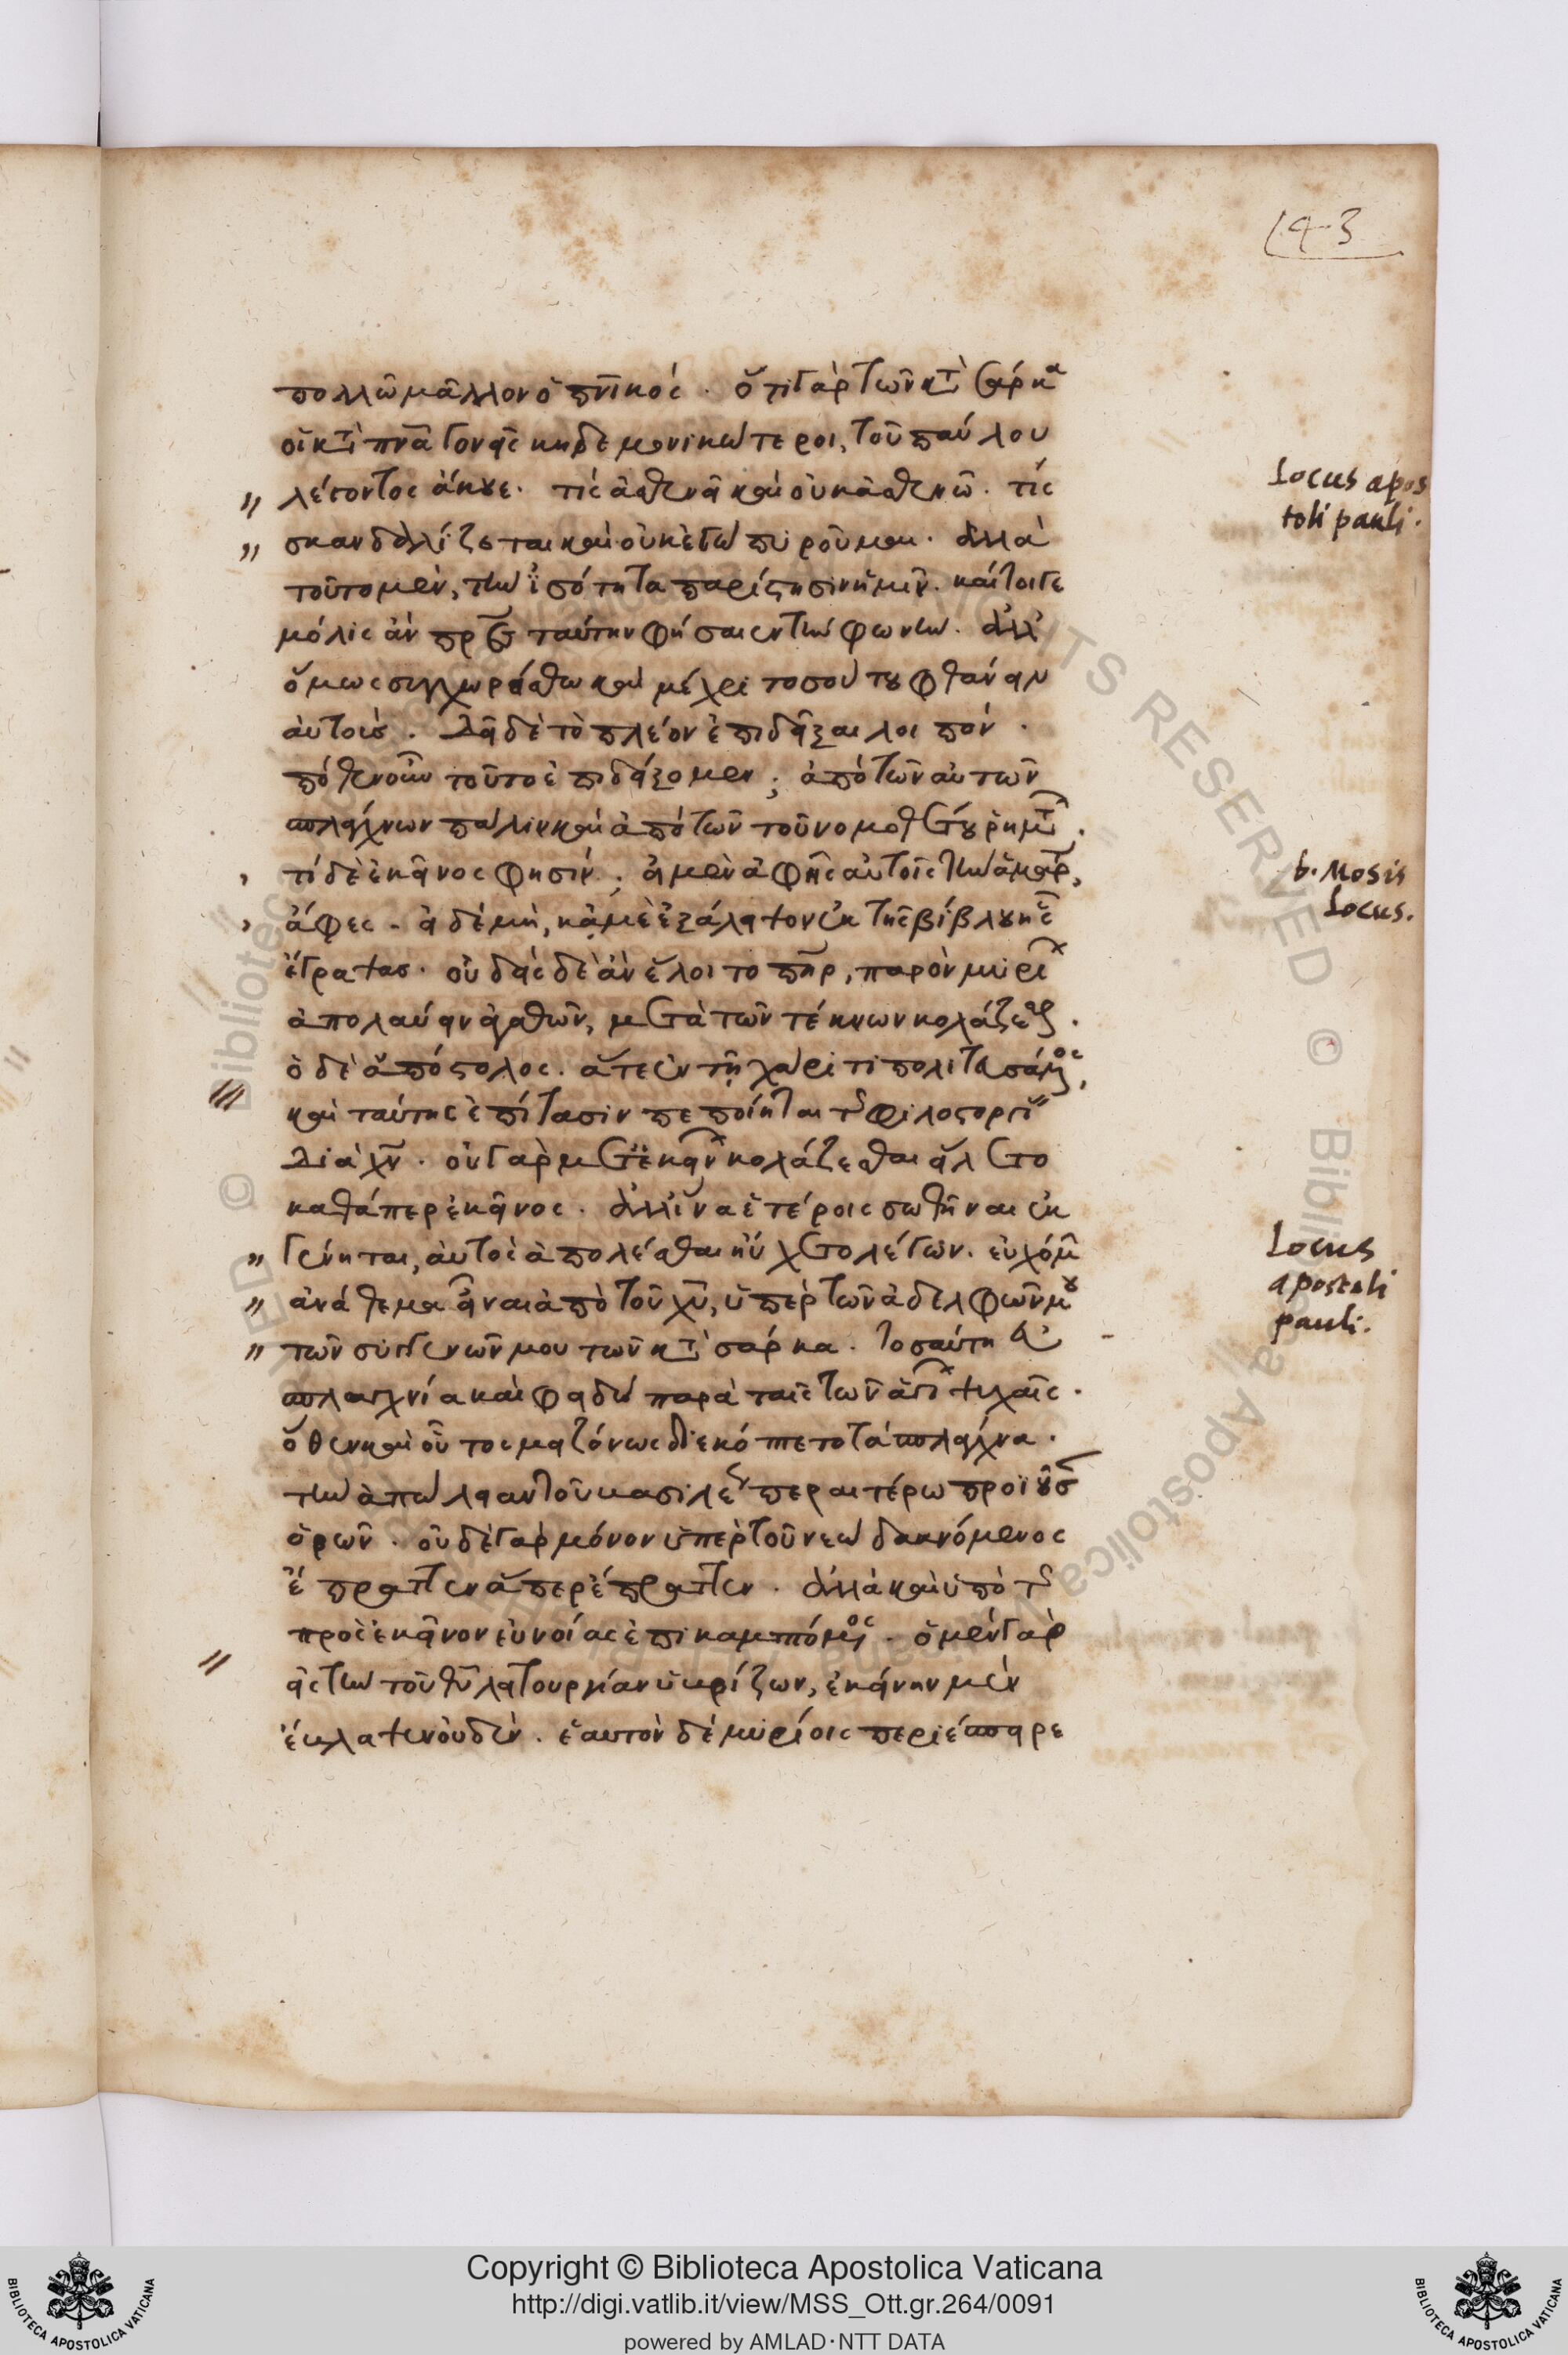 143
πολλῶ μᾶλλον ὁ πνικός. ὅτι γὰρ τῶν κτ σάρκα
οἱ κτ πνα γονεῖς κηδεμονικώτεροι, τοῦ παύλου
λέγοντος ἄκουε. τίς ἀσθενεῖ καὶ οὐκ ἀσθενῶ. τίς
σκανδαλίζεται καὶ οὐκ ἐγὼ πυροῦμαι. ἀλλὰ
τοῦτο μὲν, τὴν ἰσότητα παρίστησιν ἡμῖν. καίτοιγε
μόλις ἂν πρ ταύτην φήσαιεν τὴν φωνήν. ἀλλ'
ὅμως συγχωρείσθω καὶ μέχρι τοσούτου φθάνειν
αὐτοῖς. δεῖ δὲ τὸ πλέον ἐπιδεῖξαι λοιπόν.
πόθεν οὖν τοῦτο ἐπιδείξομεν; ἀπὸ τῶν αὐτῶν
σπλάγχνων πάλιν καὶ ἀπὸ τῶν τοῦ νομοθέτου ῥημτ.
τί δὲ ἐκεῖνος φησίν; εἰ μὲν ἀφῇς αὐτοῖς τὴν ἁμαρ,
ἄφες. εἰ δὲ μὴ, κἀμὲ ἐξάλειψον ἐκ τῆς βίβλου ἧς
ἔγραψας. οὐδεὶς δὲ ἂν ἕλοιτο πηρ, παρὸν μυρί
ἀπολαύειν ἀγαθῶν, μετὰ τῶν τέκνων κολάζεσθαι.
ὁ δὲ ἀπόστολος. ἅτε ἐν τῇ χάριτι πολιτευσάμος,
καὶ ταύτης ἐπίτασιν πεποίηται τῆς φιλοστοργί
διὰ χν. οὐ γὰρ μετ' ἐκείν κολάζεσθαι εἵλετο
καθάπερ ἐκεῖνος. ἀλλ' ἵνα ἑτέροις σωθῆναι ἐκ
γένηται, αὐτὸς ἀπολέσθαι ηὔχετο λέγων. εὐχόμ
ἀνάθεμα εἶναι ἀπὸ τοῦ χυ, ὑπὲρ τῶν ἀδελφῶν μου
τῶν συγγενῶν μου τῶν κτ σάρκα. τοσαύτη
σπλαγχνία καὶ φειδὼ παρὰ ταῖς τῶν ἁγί ψυχαῖς.
ὅθεν καὶ οὗτος μειζόνως διεκόπτετο τὰ σπλάγχνα.
τὴν ἀπώλειαν τοῦ βασιλέ περαιτέρω προϊοῦσ
ὁρῶν. οὐδὲ γὰρ μόνον ὑπὲρ τοῦ νεὼ δακνόμενος
ἔπραττεν ἅπερ ἔπραττεν. ἀλλὰ καὶ ὑπὸ τῆς
πρὸς ἐκεῖνον εὐνοίας ἐπικαμπτόμος. ὁ μὲν γὰρ
εἰς τὴν τοῦ θυ λειτουργίαν ὑβρίζων, ἐκείνην μὲν
ἔβλαψεν οὐδέν. ἑαυτὸν δὲ μυρίοις περιέπειρε
Locus apos
toli pauli.
b. Mosis
Locus.
Locus
apostoli
pauli.
Copyright © Biblioteca Apostolica Vaticana
http://digi.vatlib.it/view/MSS_Ott.gr.264/0091
powered by AMLAD·NTT DATA